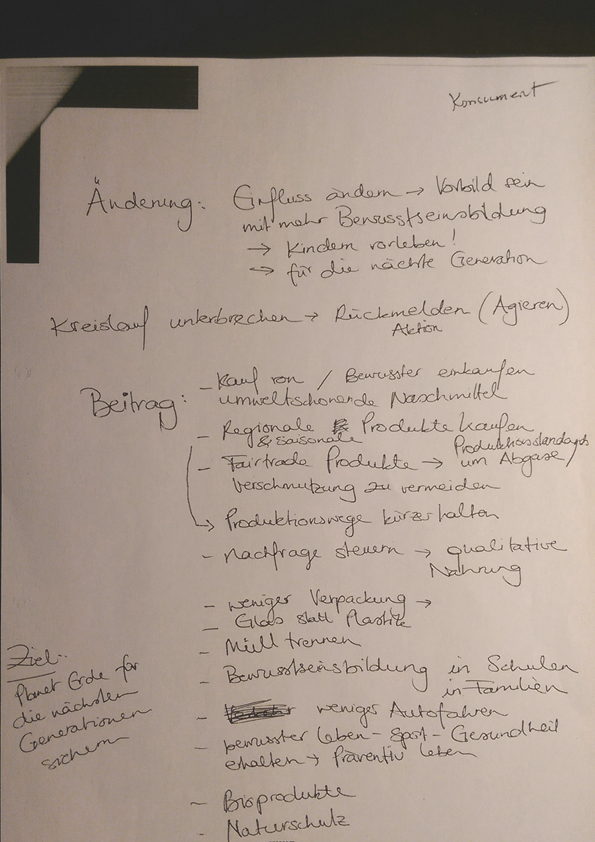 Konsument
Änderung: Einfluss ändern → Vorbild sein
mit mehr Bewusstseinsbildung
→ Kindern vorleben!
→ für die nächste Generation
Kreislauf unterbrechen → Rückmelden (Agieren)
Aktion
Beitrag: - Kauf von / Bewusster einkaufen
umweltschonende Naschmittel
- Regionale Produkte kaufen
& Saisonale
- Fairtrade Produkte → Produktionsstandards
um Abgase/
Verschmutzung zu vermeiden
→ Produktionswege kürzer halten
- Nachfrage steuern → qualitative
Nahrung
- weniger Verpackung →
- Glas statt Plastik
- Müll trennen
- Bewusstseinsbildung in Schulen
in Familien
- weniger Autofahren
- bewusster leben - Sport - Gesundheit
erhalten → Präventiv leben
- Bioprodukte
- Naturschutz
Ziel:
Planet Erde für
die nächsten
Generationen
sichern